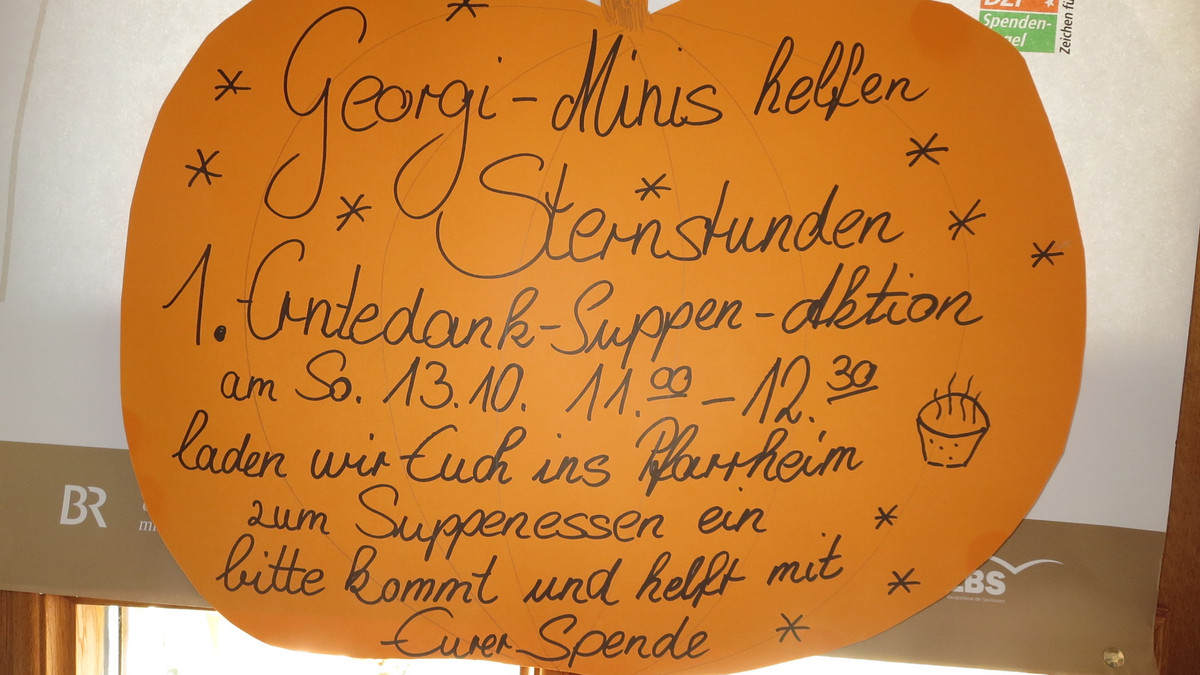 DZI
Spenden-
Zeichen fü
Georgi-Minis helfen
Sternstunden
1. Erntedank-Suppen-Aktion
am So. 13.10. 11.00 – 12.30
laden wir Euch ins Pfarrheim
zum Suppenessen ein
bitte kommt und helft mit
Eurer Spende
BR
LBS